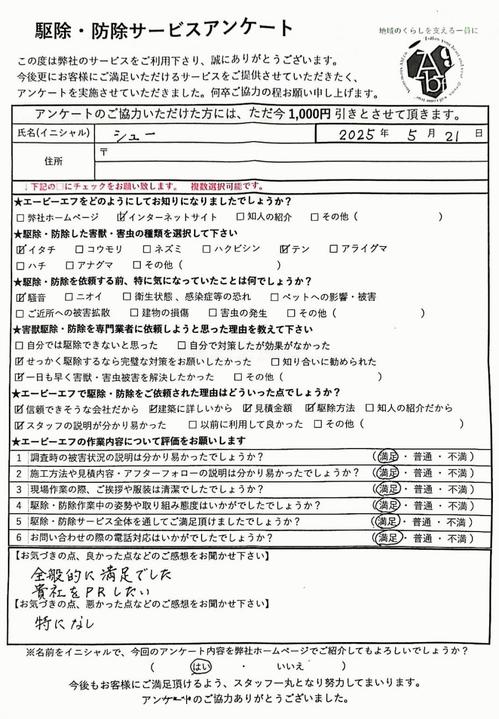 駆除・防除サービスアンケート
地域のくらしを支える一員に
この度は弊社のサービスをご利用下さり、誠にありがとうございます。
今後更にお客様にご満足いただけるサービスをご提供させていただきたく、
アンケートを実施させていただきました。何卒ご協力の程お願い申し上げます。
アンケートのご協力いただけた方には、ただ今1,000円引きとさせて頂きます。
氏名(イニシャル) シュー 2025年 5月 21日
住所 〒
↓下記の□にチェックをお願い致します。 複数選択可能です。
★エービーエフをどのようにしてお知りになりましたでしょうか?
□弊社ホームページ ☑インターネットサイト □知人の紹介 □その他( )
★駆除・防除した害獣・害虫の種類を選択して下さい
☑イタチ □コウモリ □ネズミ □ハクビシン ☑テン □アライグマ
□ハチ □アナグマ □その他( )
★駆除・防除を依頼する前、特に気になっていたことは何でしょうか?
☑騒音 □ニオイ □衛生状態、感染症等の恐れ □ペットへの影響・被害
□ご近所への被害拡散 □建物の損傷 □害虫の発生 □その他( )
★害獣駆除・防除を専門業者に依頼しようと思った理由を教えて下さい
□自分では駆除できないと思った □自分で対策したが効果がなかった
☑せっかく駆除するなら完璧な対策をお願いしたかった □知り合いに勧められた
☑一日も早く害獣・害虫被害を解決したかった □その他( )
★エービーエフで駆除・防除をご依頼された理由はどういった点でしょうか?
☑信頼できそうな会社だから ☑建築に詳しいから ☑見積金額 ☑駆除方法 □知人の紹介だから
☑スタッフの説明が分かり易かった □以前に利用して良かった □その他( )
★エービーエフの作業内容について評価をお願いします
1 調査時の被害状況の説明は分かり易かったでしょうか? (満足・普通・不満)
2 施工方法や見積内容・アフターフォローの説明は分かり易かったでしょうか? (満足・普通・不満)
3 現場作業の際、ご挨拶や服装は清潔でしたでしょうか? (満足・普通・不満)
4 駆除・防除作業中の姿勢や取り組み態度はいかがでしたでしょうか? (満足・普通・不満)
5 駆除・防除サービス全体を通してご満足頂けましたでしょうか? (満足・普通・不満)
6 お問い合わせの際の電話対応はいかがでしたでしょうか? (満足・普通・不満)
【お気づきの点、良かった点などのご感想をお聞かせ下さい】
全般的に満足でした
貴社をPRしたい
【お気づきの点、悪かった点などのご感想をお聞かせ下さい】
特になし
※名前をイニシャルで、今回のアンケート内容を弊社ホームページでご紹介してもよろしいでしょうか?
( はい ・ いいえ )
今後もお客様にご満足頂けるよう、スタッフ一丸となり努力してまいります。
アンケートのご協力ありがとうございました。